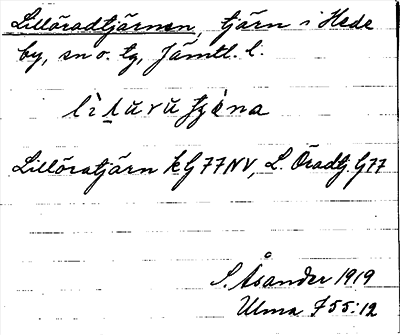 Lillöradtjärnen, tjärn i Hede
by, sn o. tg, Jämtl. l.
Lillöratjärn kG77NV, L. Öradtj. G77
S. Åsander 1919
Ulma 755:12